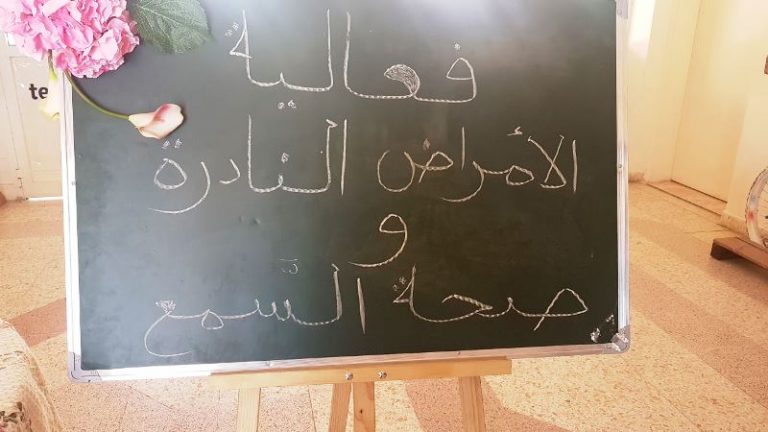 فعالية
الأمراض النادرة
و
صحة السّمع
te